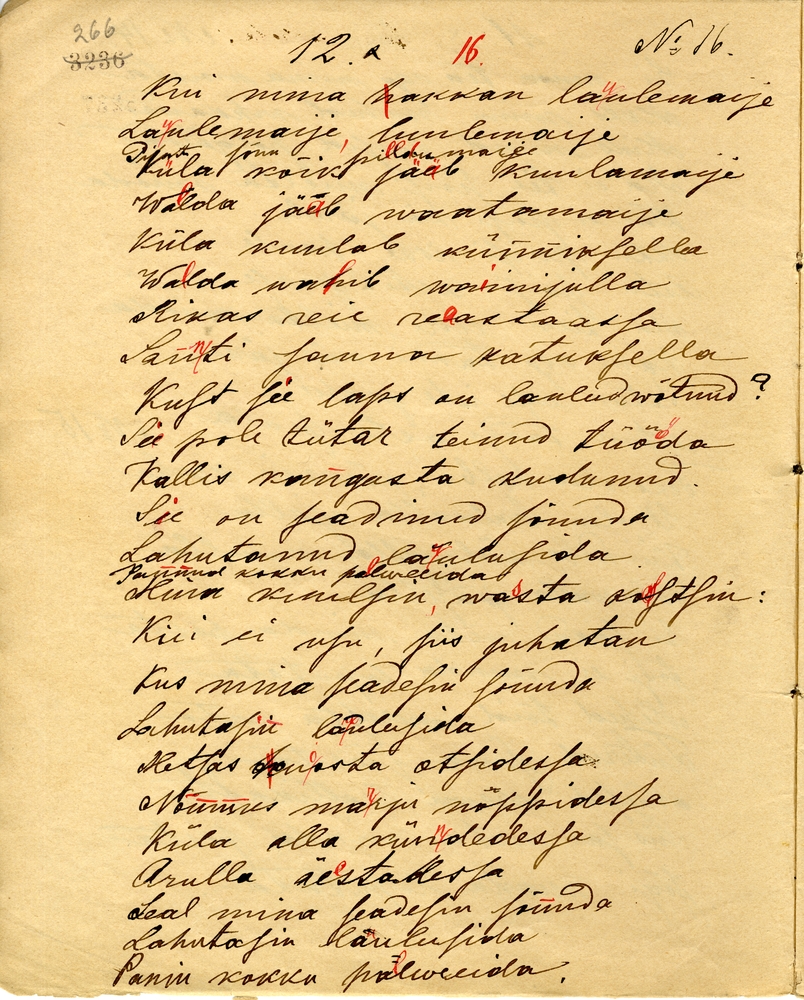 266
3236
12. a 16. № 16.
Kui mina hakkan laulemaije
Laulemaije, luulemaije
Pinnu sõnu pillumaije
Küla kõik jääb kuulamaije
Walda jääb waatamaije
Küla kuulab künniksella
Walda wahib wainijulla
Rikas reie reastaassa
Santi sauna katuksella
Kust sie laps on laulud wõtnud?
Sie pole tütar teinud tüöda
Kallis kangasta kudunud.
Sie on seadinud sõnuda
Lahutanud laulusida
Pannud kokku palweeida
Mina kuulsin, wasta kostsin:
Kui ei usu, siis juhatan
Kus mina seadesin sõnuda
Lahutasin laulusida
Metsas otsidessa
Nõmmes marju nõppidessa
Küla alla kündedessa
Arulla äestadessa
Seal mina seadesin sõnuda
Lahutasin laulusida
Panin kokku palweeida.